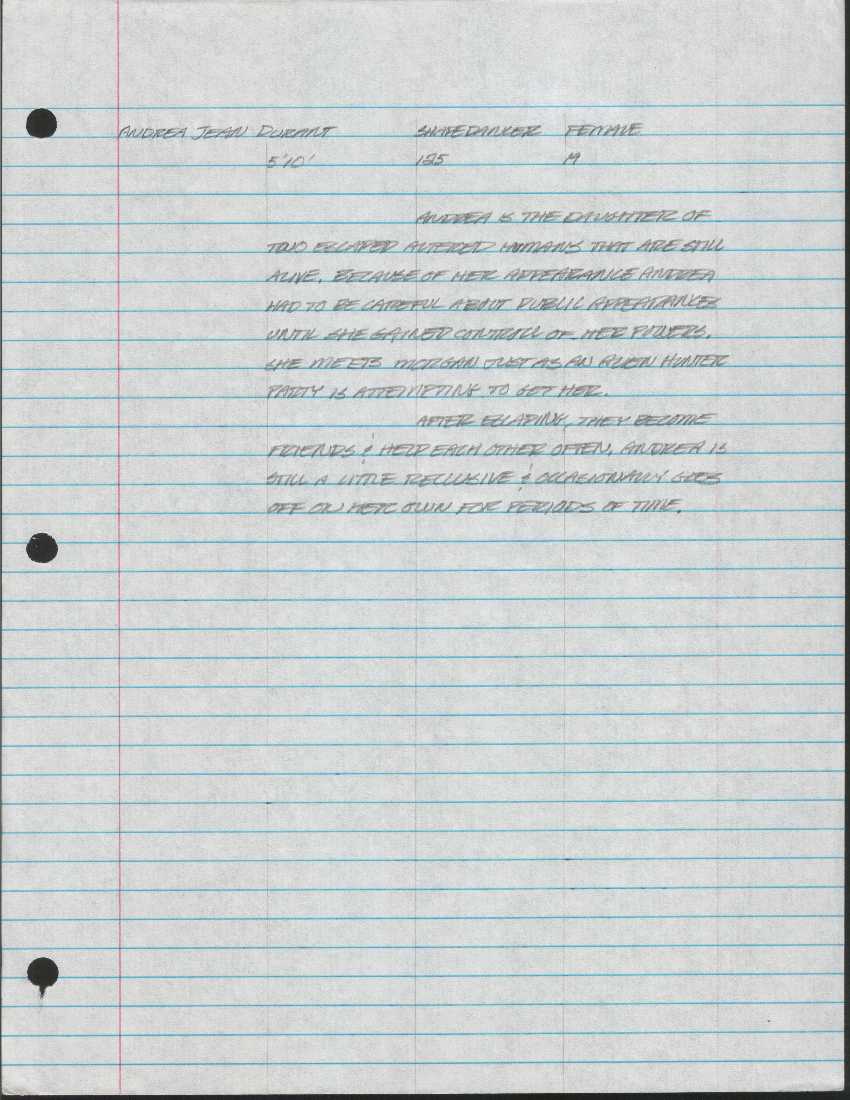 ANDREA JEAN DURANT SHAPEDANCER FEMALE
5'10' 125 19
ANDREA IS THE DAUGHTER OF
TWO ESCAPED ALTERED HUMANS THAT ARE STILL
ALIVE. BECAUSE OF HER APPEARANCE ANDREA
HAD TO BE CAREFUL ABOUT PUBLIC APPEARANCES
UNTIL SHE GAINED CONTROLL OF HER POWERS.
SHE MEETS MORGAN JUST AS AN ALIEN HUNTER
PARTY IS ATTEMPTING TO GET HER.
AFTER ESCAPING, THEY BECOME
FRIENDS & HELP EACH OTHER OFTEN. ANDREA IS
STILL A LITTLE RECLUSIVE & OCCASIONALLY GOES
OFF ON HER OWN FOR PERIODS OF TIME.